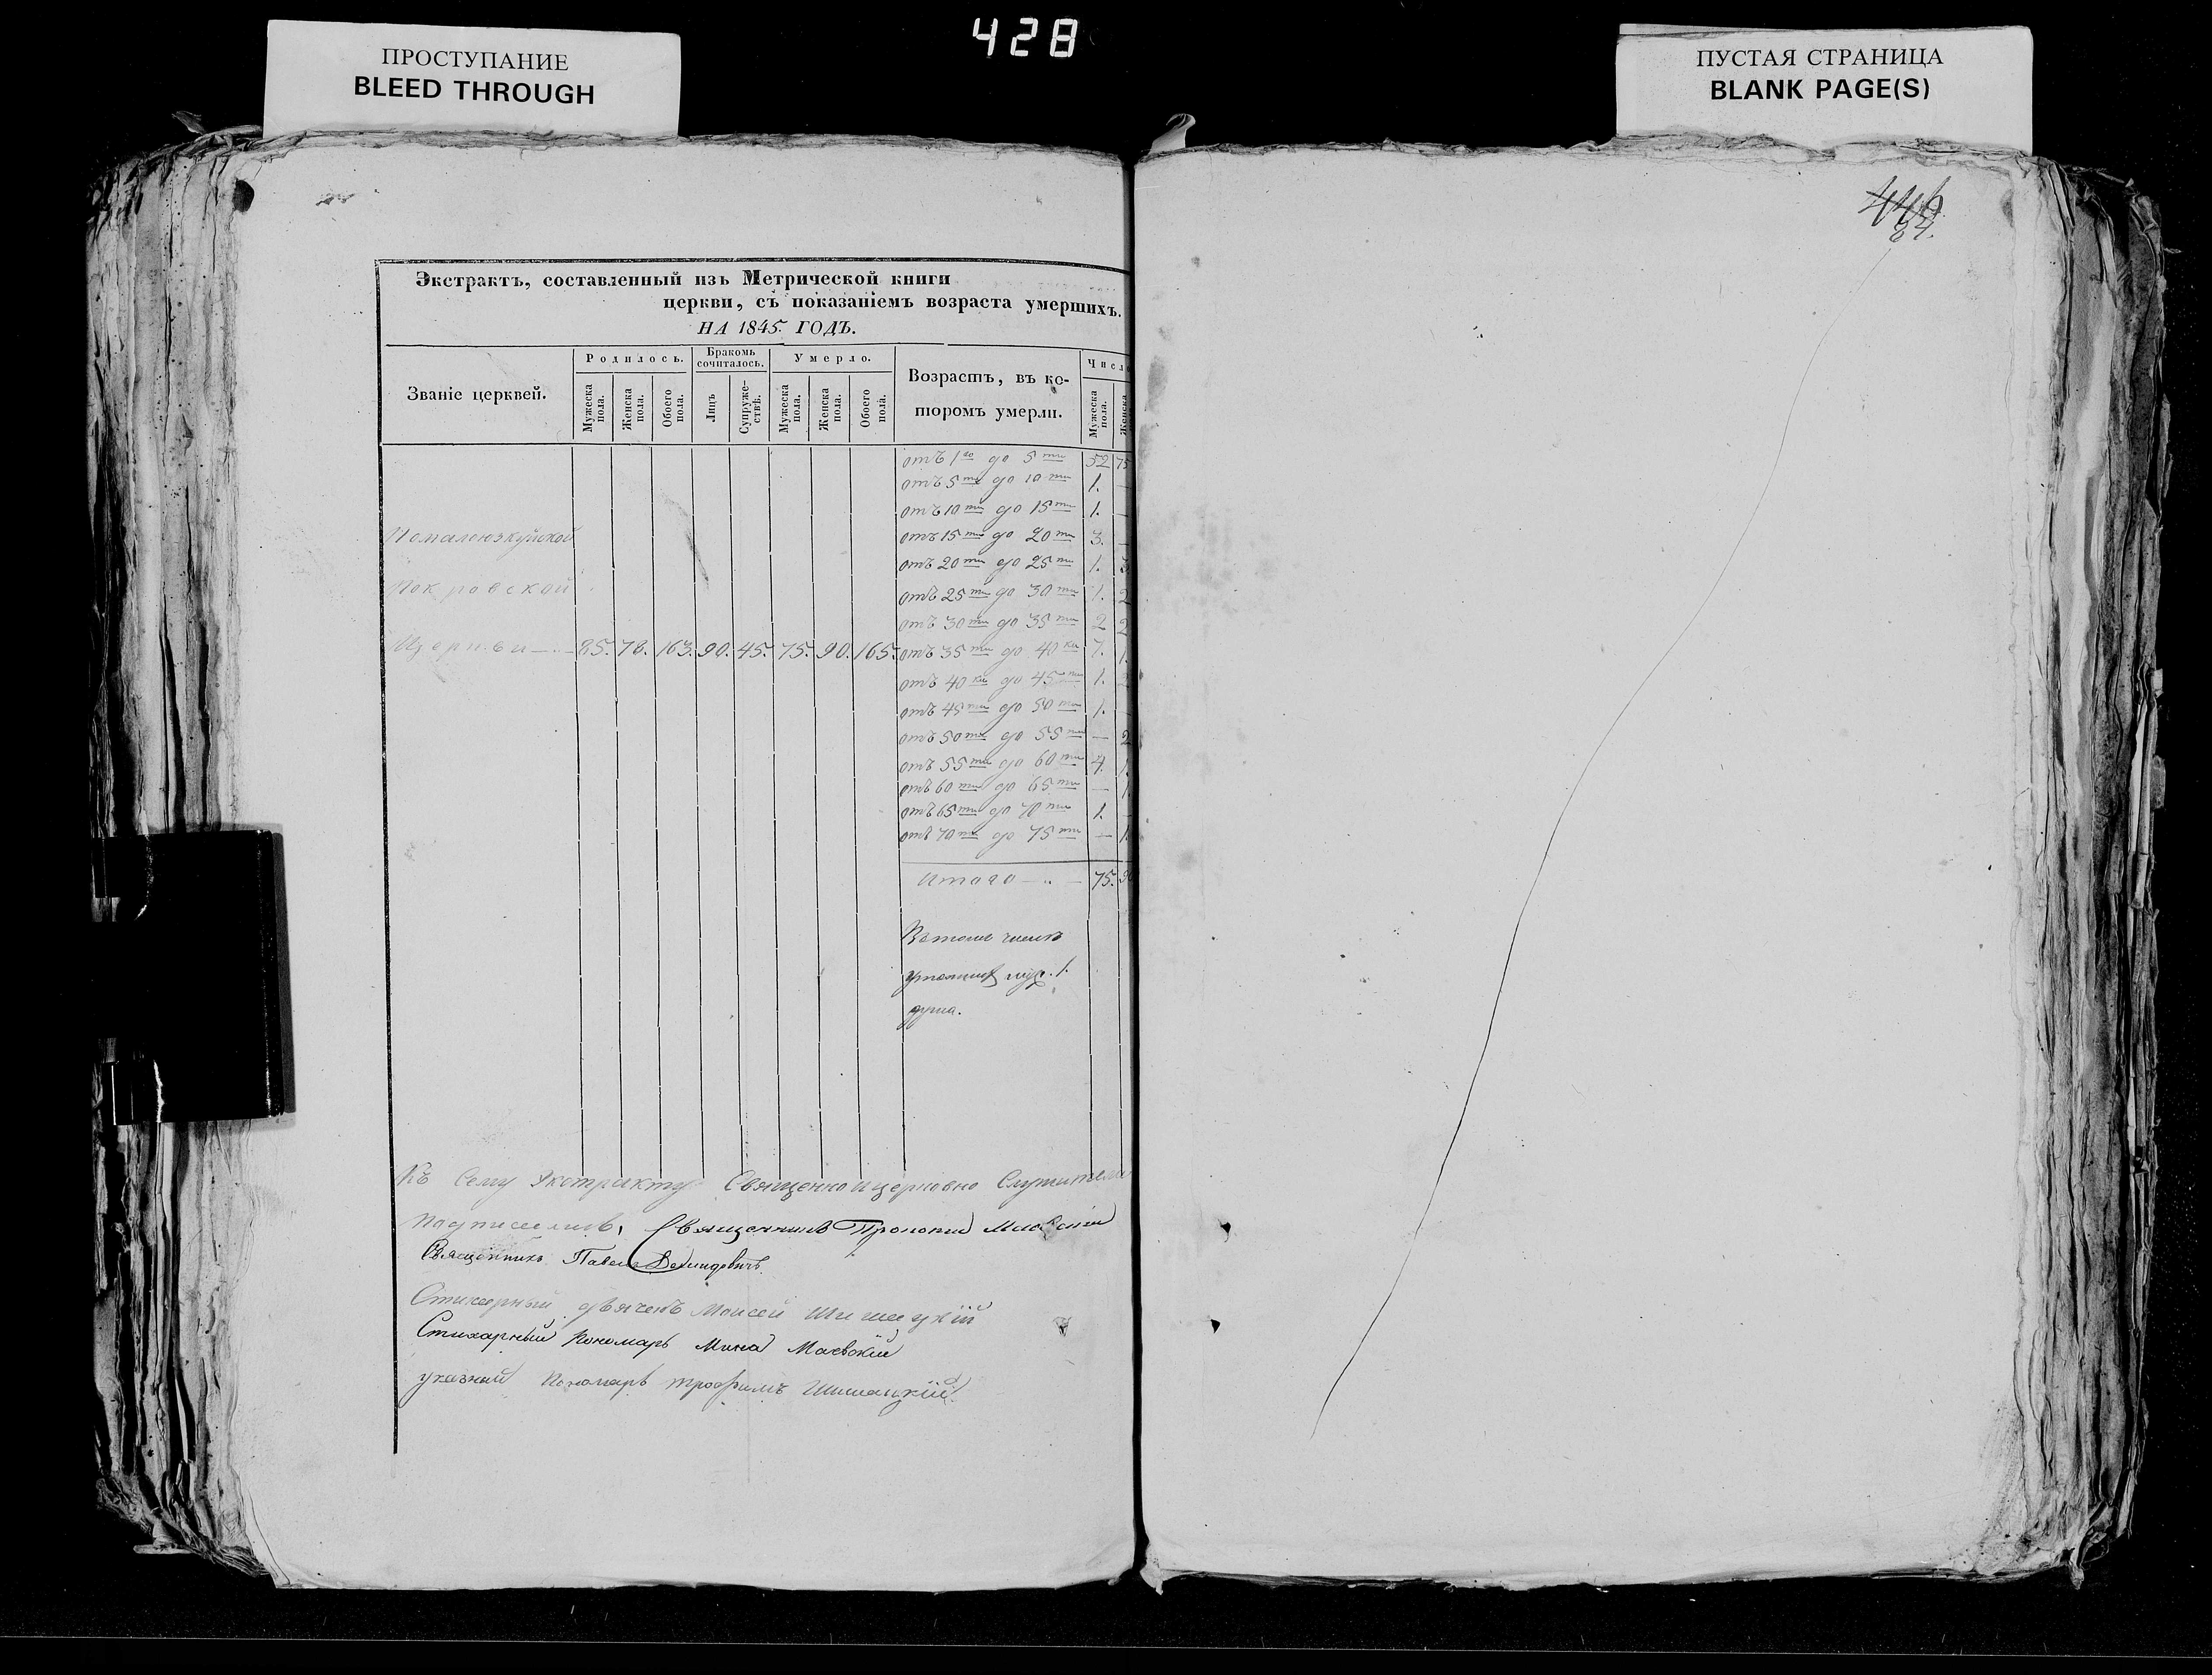 428
ПРОСТУПАНИЕ
BLEED THROUGH
ПУСТАЯ СТРАНИЦА
BLANK PAGE(S)
446
84.
Экстрактъ, составленный изъ Метрической книги
церкви, съ показаніемъ возраста умершихъ.
НА 1845. ГОДЪ.
Званіе церквей.
Родилось.
Мужеска пола.
Женска пола.
Обоего пола.
Бракомъ сочиталось.
Лицъ
Супружествъ.
Умерло.
Мужеска пола.
Женска пола.
Обоего пола.
Возрастъ, въ которомъ умерли.
Число
Мужеска пола.
Женска
отъ 1го до 5ти 52 75
отъ 5ти до 10ти 1. —
отъ 10ти до 15ти 1. —
отъ 15ти до 20ти 3. —
отъ 20ти до 25ти 1. 3
отъ 25ти до 30ти 1. 2
отъ 30ти до 35ти 2 2
Покровской
Церкви 85. 78. 163. 90. 45. 75. 90. 165. отъ 35ти до 40ка 7. 1.
отъ 40ка до 45ти 1. 2
отъ 45ти до 50ти 1. —
отъ 50ти до 55ти — 2
отъ 55ти до 60ти 4. 1.
отъ 60ти до 65ти — 1.
отъ 65ти до 70ти 1. —
отъ 70ти до 75ти — 1.
Итого 75. 90
Въ томъ числѣ
муж. 1.
душа.
Къ сему Экстракту Священно и церковно Служители
подписались, Священникъ Прокопий Маевский
Священникъ Павелъ
Стихарный дьячекъ Моисей Шишацкій
Стихарный Пономарь Мина Маевокій
указный Пономарь Трофимъ Шишацкій